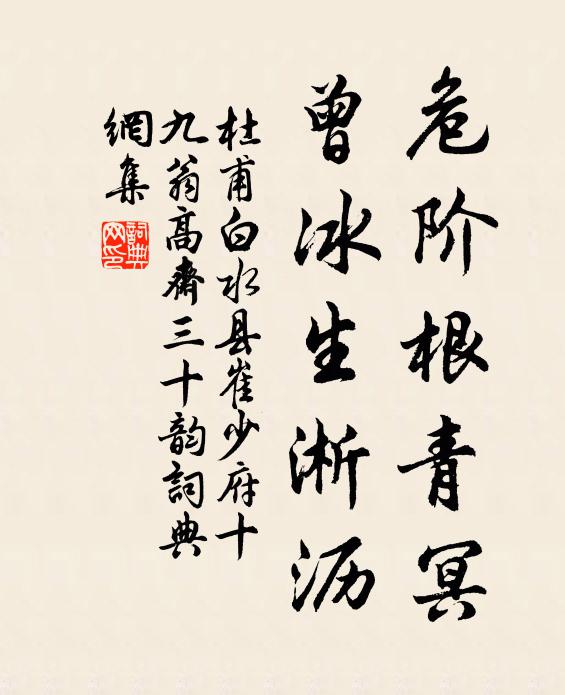 危阶根青冥
曾冰生淅沥
杜甫白水县崔少府十
九翁高齋三十韵詞典
網集
詞典
网印